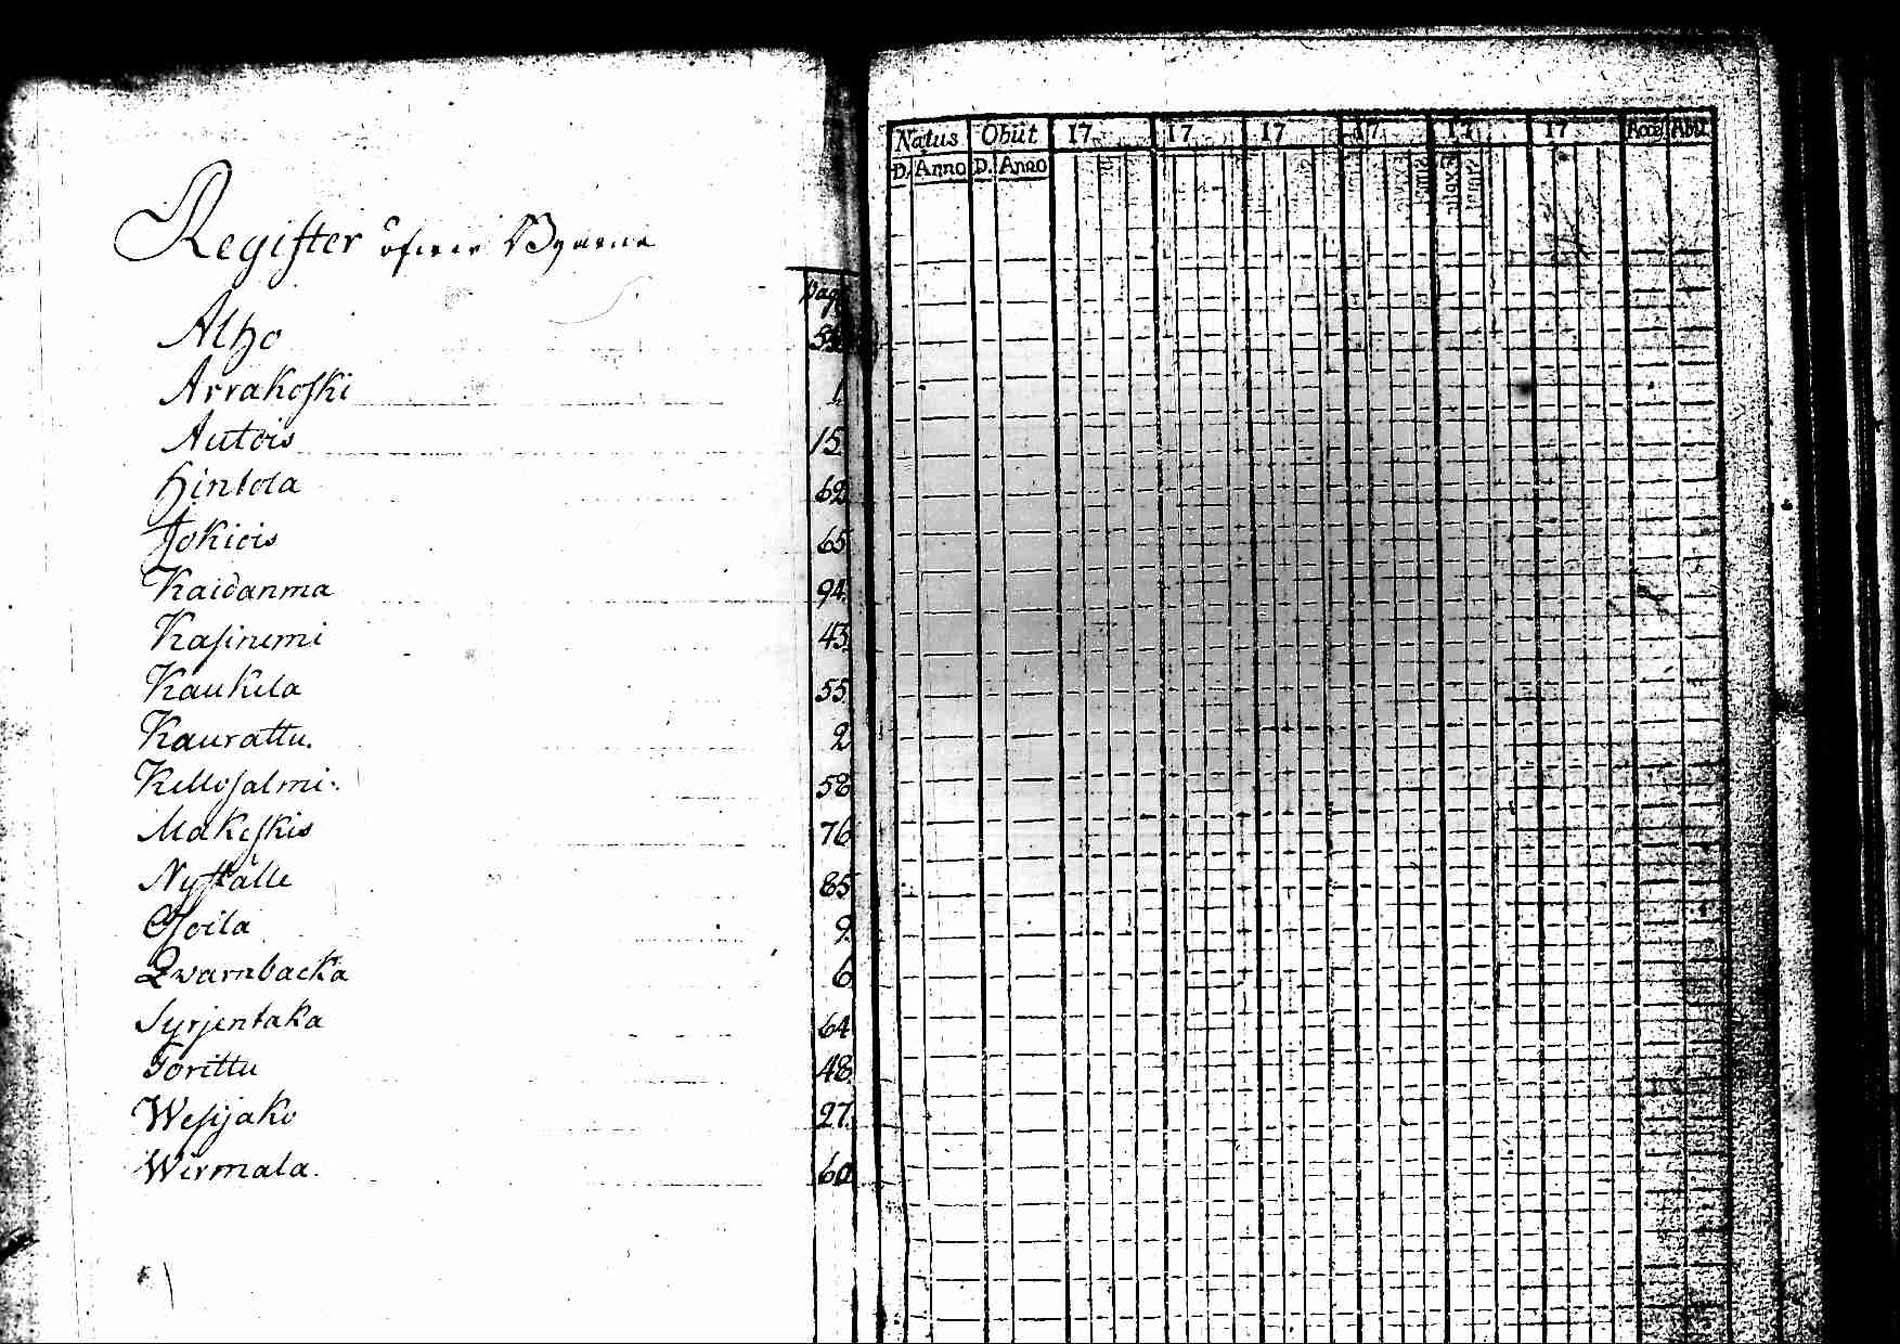 Register öfwer Byarna
Pag.
Alho
Arrakoski 1.
Autois 15.
Hintola 62
Jokiois 65
Kaidanma 94.
Kasinemi 43.
Kaukela 55
Kaurattu. 2
Kellosalmi. 58
Makeskis 76
Nyställe 85
Osoila 9.
Qwarnbacka 6
Syrjentaka 64
Torittu 48
Wesijako 27.
Wirmala. 60
Natus Obiit 17 17 17 17 17 17 Acce Abit
D. Anno D. Anno